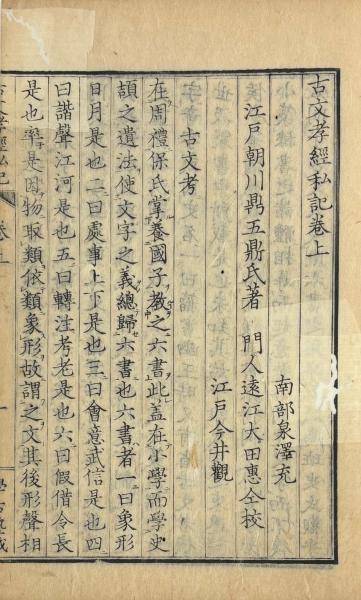 古文孝經私記卷上
南部 泉澤充
江戸 朝川鼎五鼎氏著 門人 遠江 大田惠 仝校
江戸 今井觀
古文考
在周禮保氏掌養國子教之六書此蓋在小學而學史
頡之遺法使文字之義總歸六書也六書者一曰象形
日月是也二曰處事上下是也三曰會意武信是也四
曰諧聲江河是也五曰轉注考老是也六曰假借令長
是也率是因物取類依類象形故謂之文其後形聲相
古文孝經私記 卷上 一